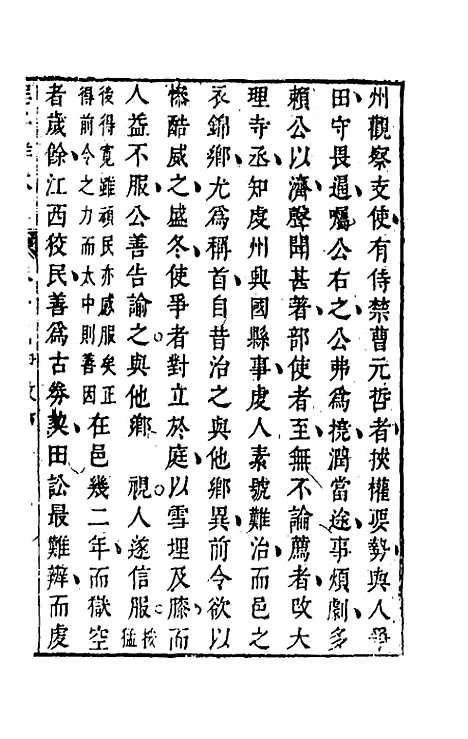 州觀察支使有侍禁曹元哲者挾權要勢與人爭
田守畏遏囑公右之公弗爲撓潤當途事煩劇多
賴公以濟聲聞甚著部使者至無不論薦者改大
理寺丞知虔州興國縣事虔人素號難治而邑之
衣錦鄉尤爲稱首自昔治之與他鄉異前令欲以
慘酷威之盛冬使爭者對立於庭以雪埋及膝而
人益不服公善告諭之與他鄉　視人遂信服按猛
後得寬雖頑民亦感服矣正
得前令之力而太中則善因
在邑幾二年而獄空
者歲餘江西狡民善爲古劵契田訟最難辨而虔